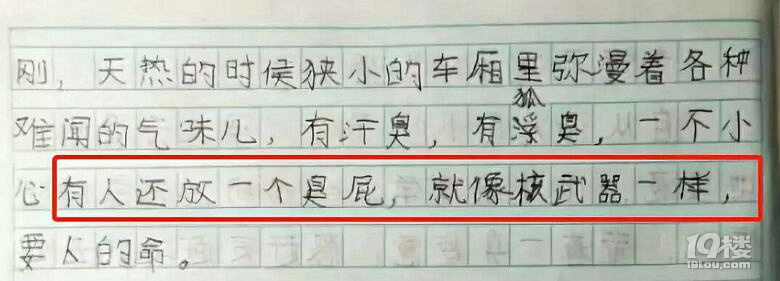 刚，天热的时侯狭小的车厢里弥漫着各种
难闻的气味儿，有汗臭，有狐浮臭，一不小
心有人还放一个臭屁，就像核武器一样，
要人的命。
19楼
19lou.com